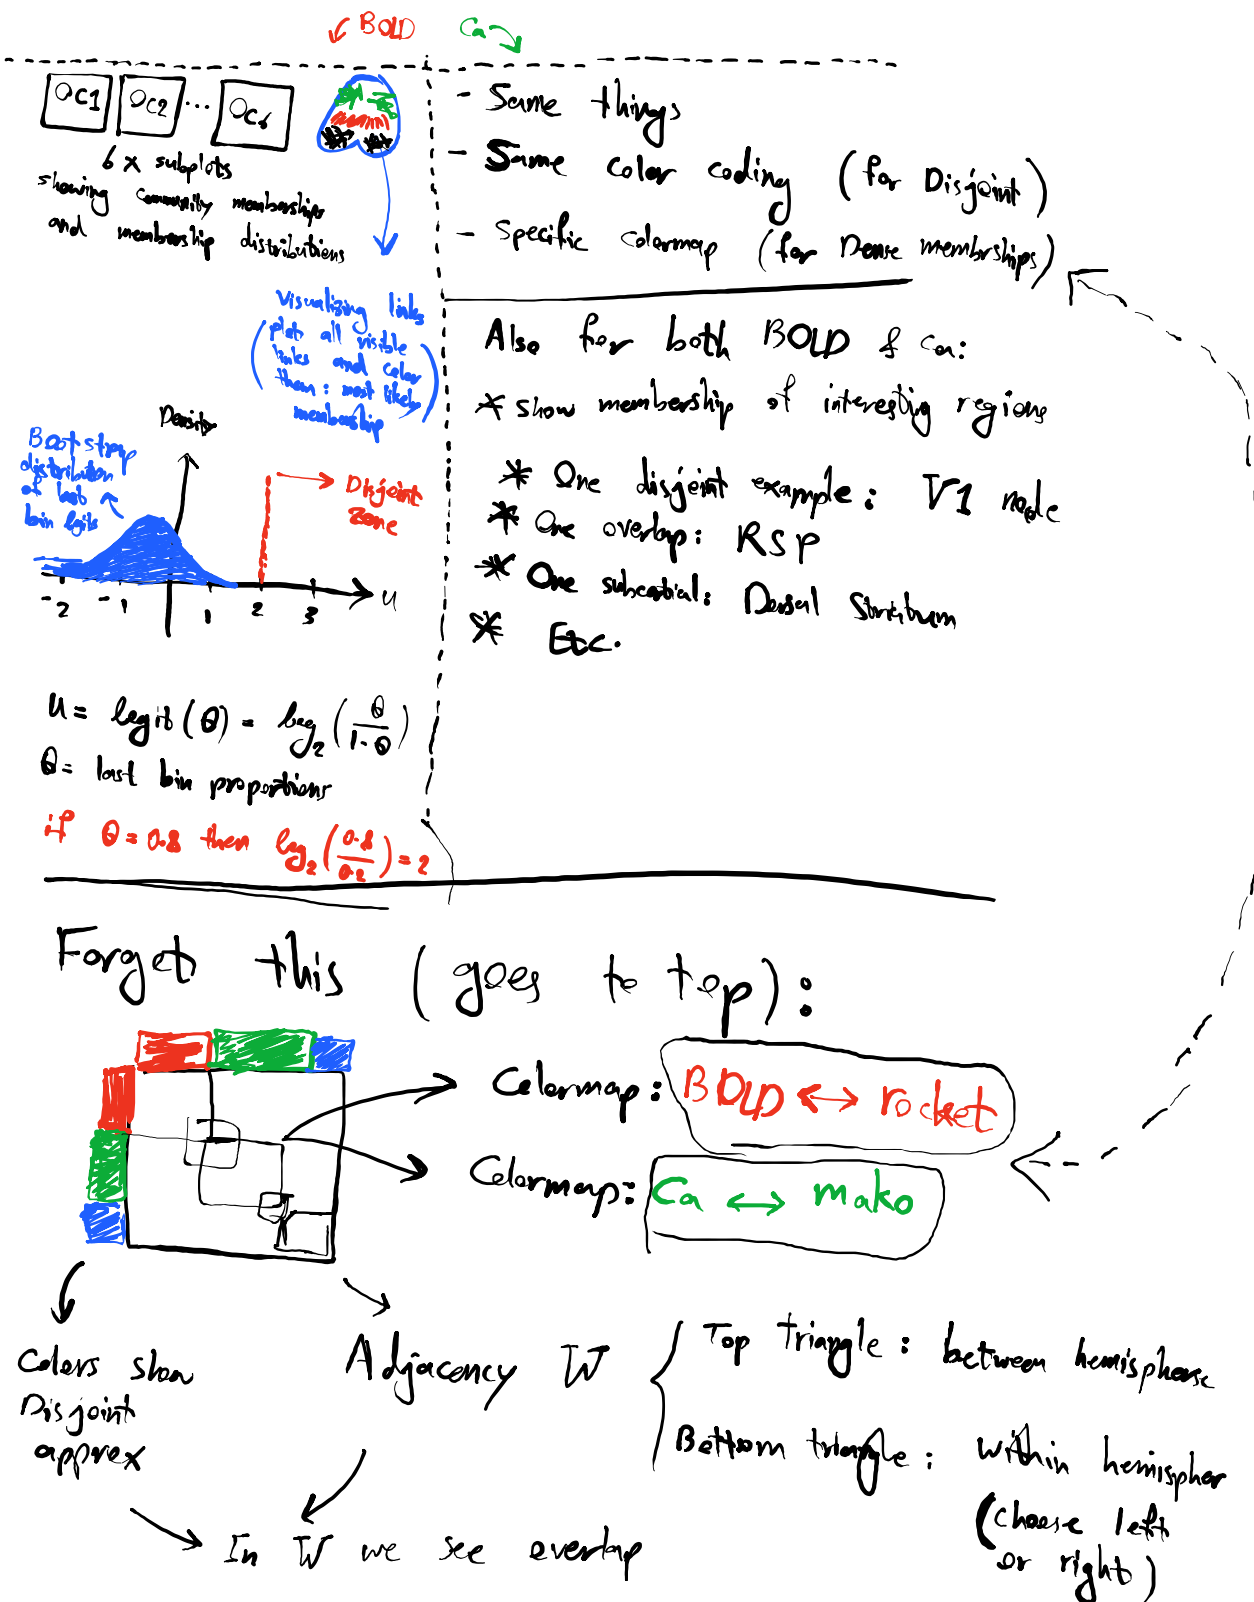 BOLD
Ca
OC1
OC2
...
OC6
6 x subplots
showing community memberships
and membership distributions
Visualizing links
(plot all visible
links and color
them: most likely
membership)
Density
Bootstrap
distribution
of last
bin logits
Disjoint
zone
-2 -1 1 2 3 u
u = logit(θ) = log₂(θ/1-θ)
θ = last bin proportions
if θ=0.8 then log₂(0.8/0.2) = 2
- Same things
- Same color coding (for Disjoint)
- Specific colormap (for Dense membrships)
Also for both BOLD & Ca:
* show membership of interesting regions
* One disjoint example: V1 node
* One overlap: RSP
* One subcortial: Dorsal Striatum
* Etc.
Forget this (goes to top):
Colormap: BOLD ↔ rocket
Colormap: Ca ↔ mako
Colors show
Disjoint
approx
Adjacency W
Top triangle: between hemisphere
Bottom triangle: within hemispher
(choose left
or right)
In W we see overlap